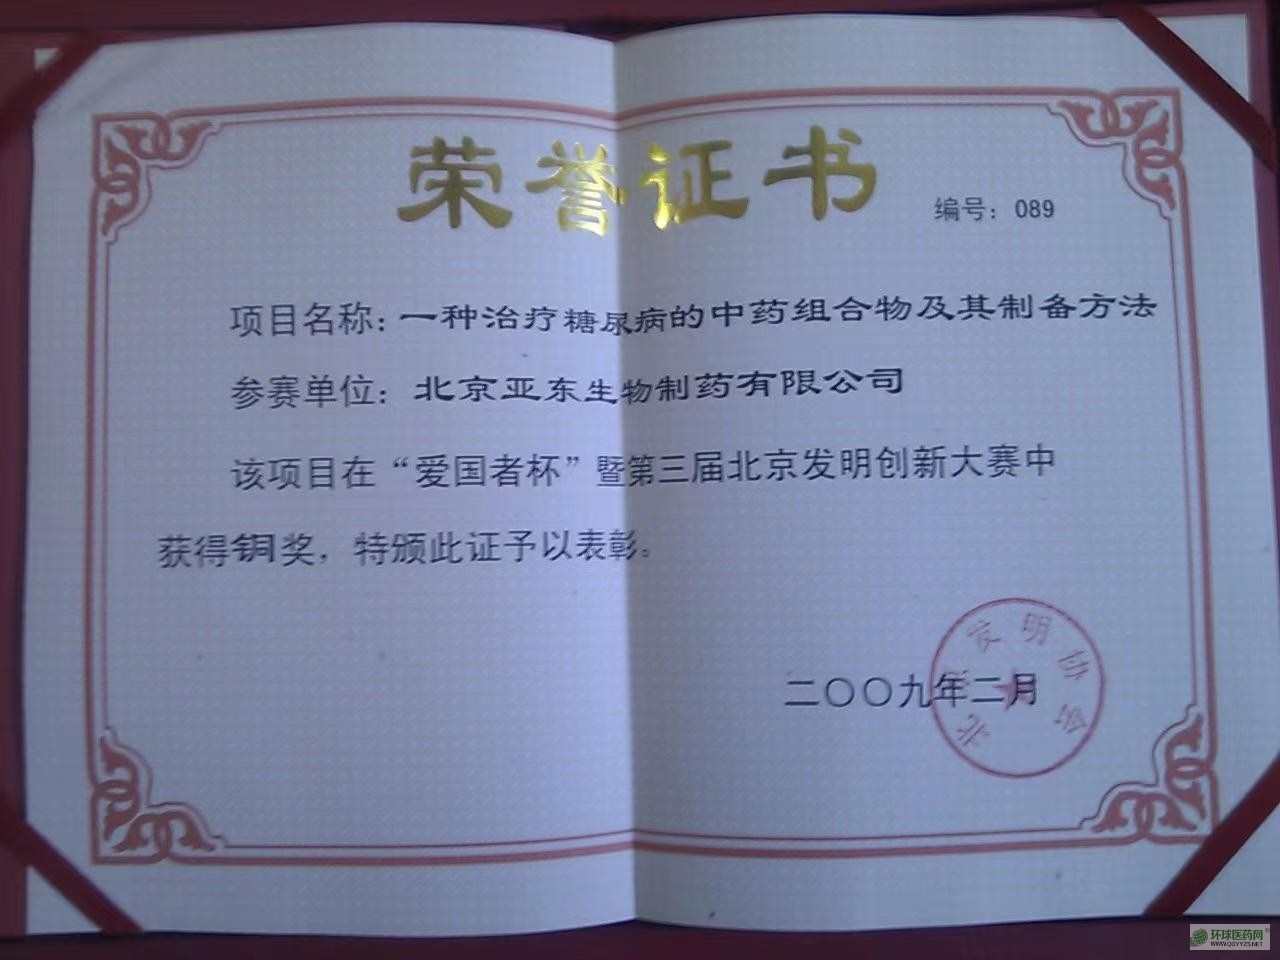 荣誉证书
编号：089
项目名称：一种治疗糖尿病的中药组合物及其制备方法
参赛单位：北京亚东生物制药有限公司
该项目在“爱国者杯”暨第三届北京发明创新大赛中
获得铜奖，特颁此证予以表彰。
二〇〇九年二月
北京发明协会
环球医药网
WWW.QGYYZS.NET